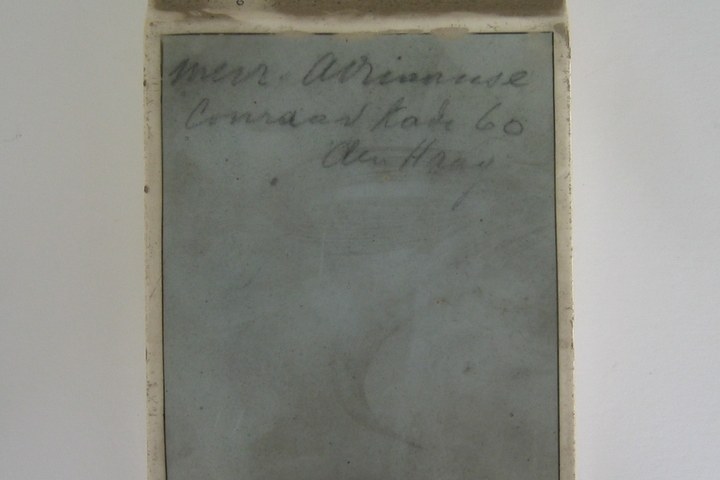 mevr. Adrianuse
Conraad Kade 60
den Haag